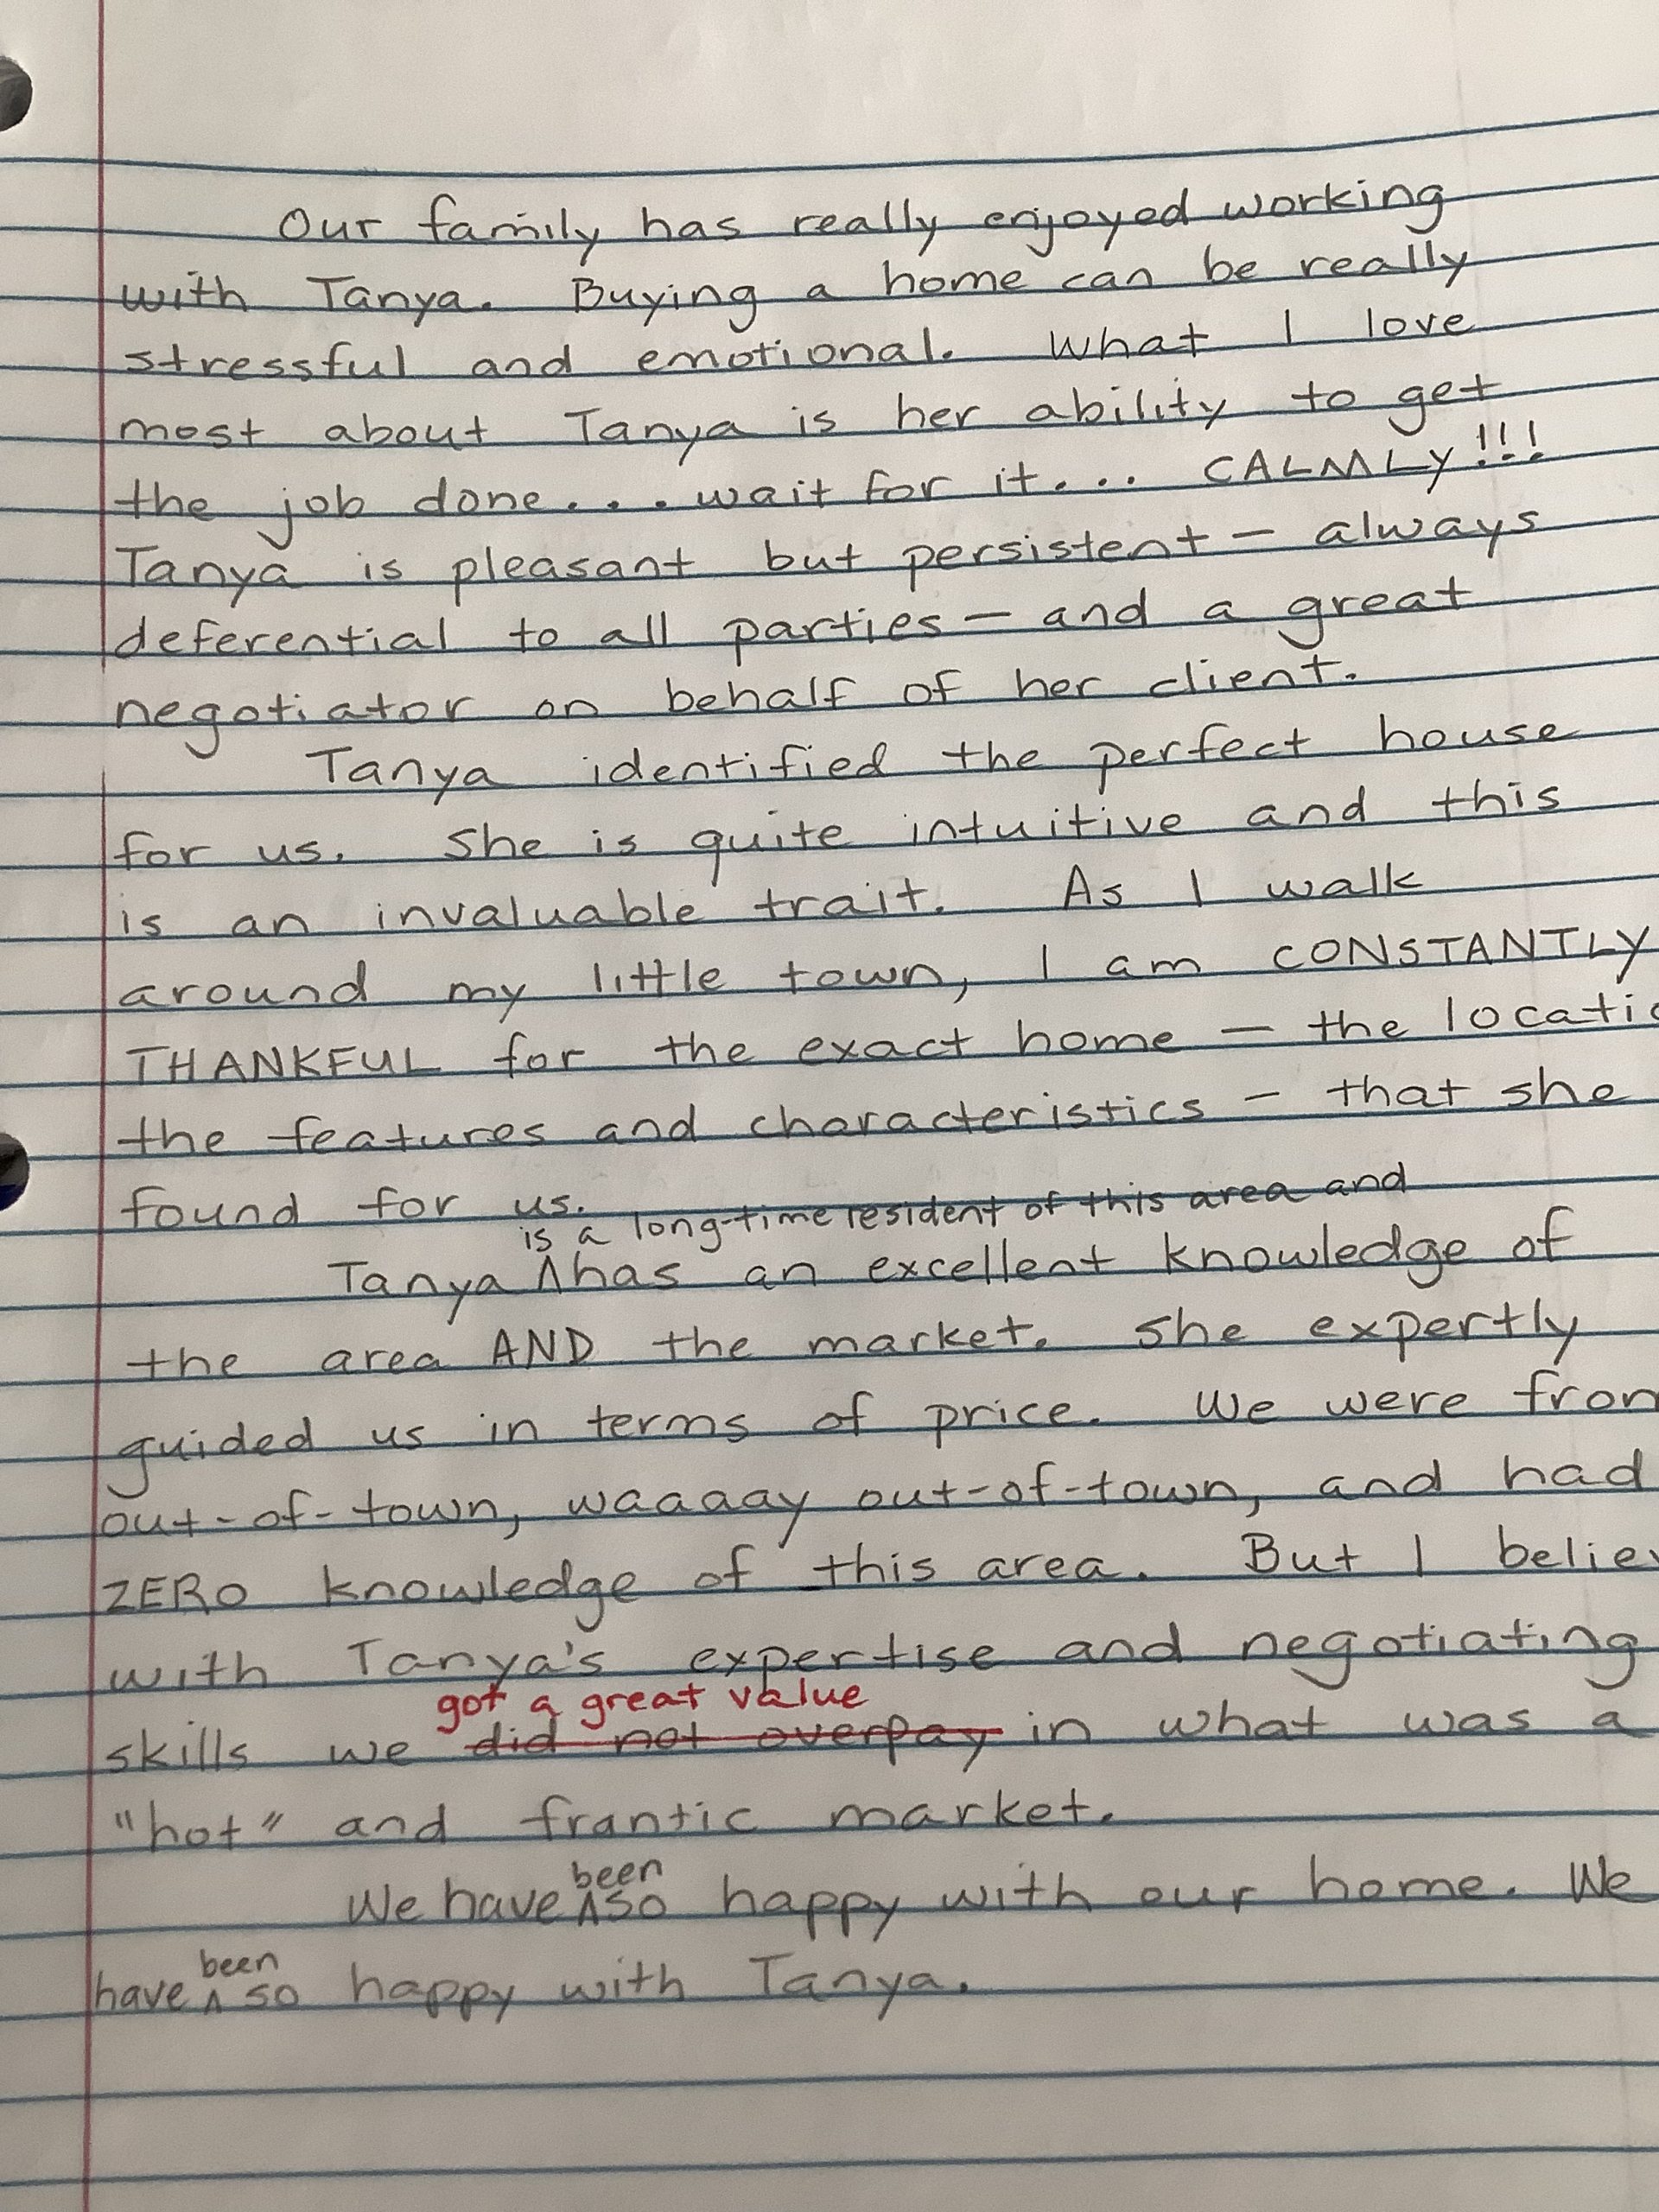 Our family has really enjoyed working
with Tanya. Buying a home can be really
stressful and emotional. What I love
most about Tanya is her ability to get
the job done... wait for it... CALMLY!!!
Tanya is pleasant but persistent — always
deferential to all parties — and a great
negotiator on behalf of her client.
Tanya identified the perfect house
for us. She is quite intuitive and this
is an invaluable trait. As I walk
around my little town, I am CONSTANTLY
THANKFUL for the exact home — the locatio
the features and characteristics — that she
found for us.
is a long-time resident of this area and
Tanya ^ has an excellent knowledge of
the area AND the market. She expertly
guided us in terms of price. We were from
out-of-town, waaaay out-of-town, and had
ZERO knowledge of this area. But I believ
with Tanya's expertise and negotiating
got a great value
skills we did not overpay in what was a
"hot" and frantic market.
been
We have ^ so happy with our home. We
been
have ^ so happy with Tanya.